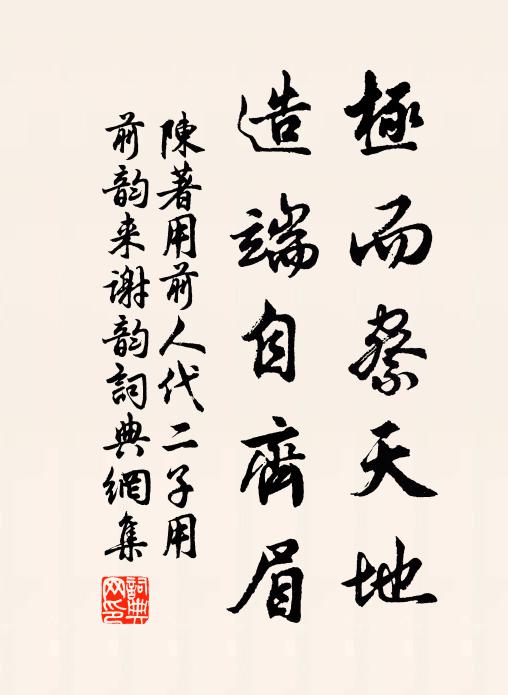 極而察天地
造端自齊眉
陳著用前人代二子用
前韵来谢韵詞典網集
詞典網印